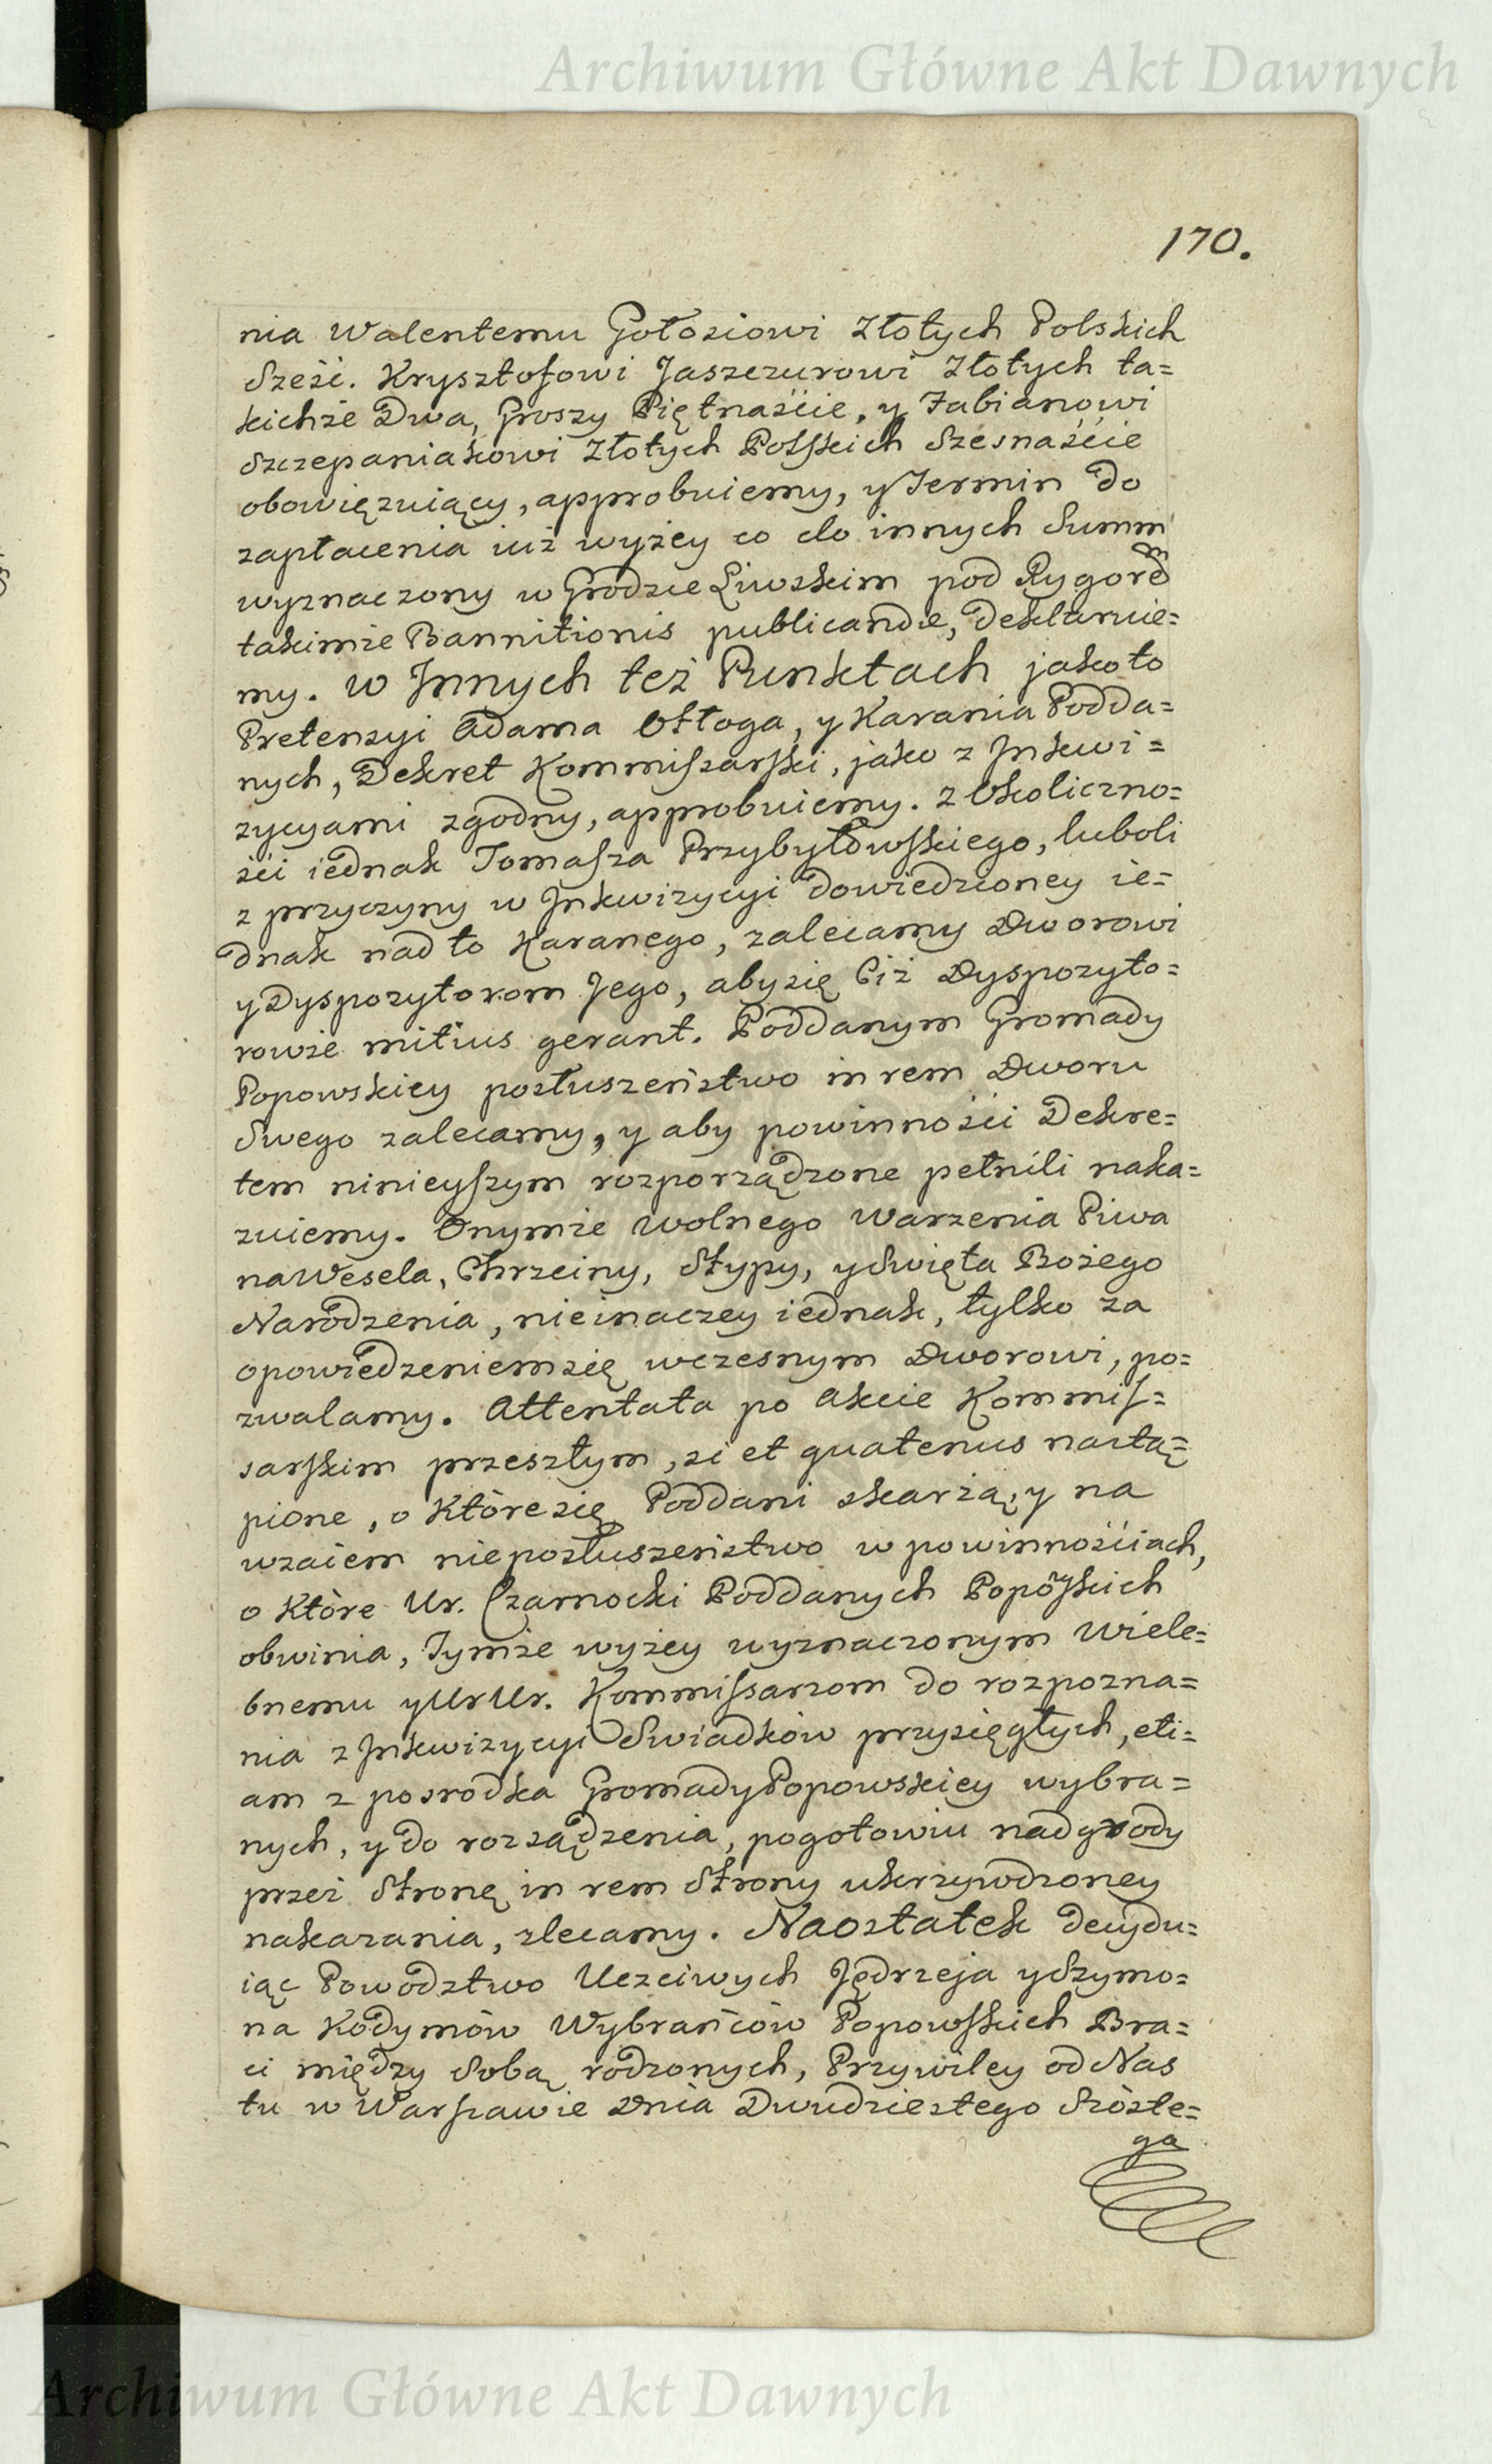 Archiwum Główne Akt Dawnych
170.
nia Walentemu Gołosiowi Złotych Polskich
Sześć. Krysztofowi Jaszczurowi Złotych ta=
kichże Dwa, Groszy Piętnaście, y Fabianowi
Szczepaniakowi Złotych Polskich Szesnaście
obowięzuiący, approbuiemy, y Termin do
zapłacenia iuż wyżey co do innych Summ
wyznaczony w Grodzie Liwskim pod Rygorem
takimże Bannitionis publicandæ, deklaruie=
my. W Innych też Punktach jako to
Pretensyi Adama Ostoga, y Karania Podda=
nych, Dekret Kommissarski, jako z Inkwi=
zycyami zgodny, approbuiemy. Z Okoliczno=
ści iednak Tomasza Przybyłowskiego, luboli
z przyczyny w Inkwizycyi dowiedzioney ie=
dnak nad to Karanego, zalecamy Dworowi
y Dyspozytorom Jego, aby się Ciż Dyspozyto=
rowie mitius gerant. Poddanym Gromady
Popowskiey posłuszeństwo in rem Dworu
Swego zalecamy, y aby powinności Dekre=
tem ninieyszym rozporządzone pełnili naka=
zuiemy. Onymże wolnego Warzenia Piwa
na Wesela, Chrzciny, Stypy, y Święta Bożego
Narodzenia, nieinaczey iednak, tylko za
opowiedzeniem się wczesnym Dworowi, po=
zwalamy. Attentata po Akcie Kommis=
sarskim przeszłym, si et quatenus nastą=
pione, o Które się Poddani skarżą, y na
wzaiem nieposłuszeństwo w powinnościach,
o Które Ur. Czarnocki Poddanych Poposkich
obwinia, Tymże wyżey wyznaczonym Wiele=
bnemu y Ur Ur. Kommissarzom do rozpozna=
nia z Inkwizycyi Swiadków przysięgłych, eti=
am z posrodka Gromady Popowskiey wybra=
nych, y do rozsądzenia, pogotowiu nadgrody
przez Stronę in rem Strony ukrzywdzoney
nakazania, zlecamy. Naostatek decydu=
iąc Powodztwo Uczciwych Jędrzeja y Szymo=
na Kodymów Wybrańców Popowskich Bra=
ci między Sobą rodzonych, Przywiley od Nas
tu w Warszawie Dnia Dwudziestego Szóste=
go
Archiwum Główne Akt Dawnych